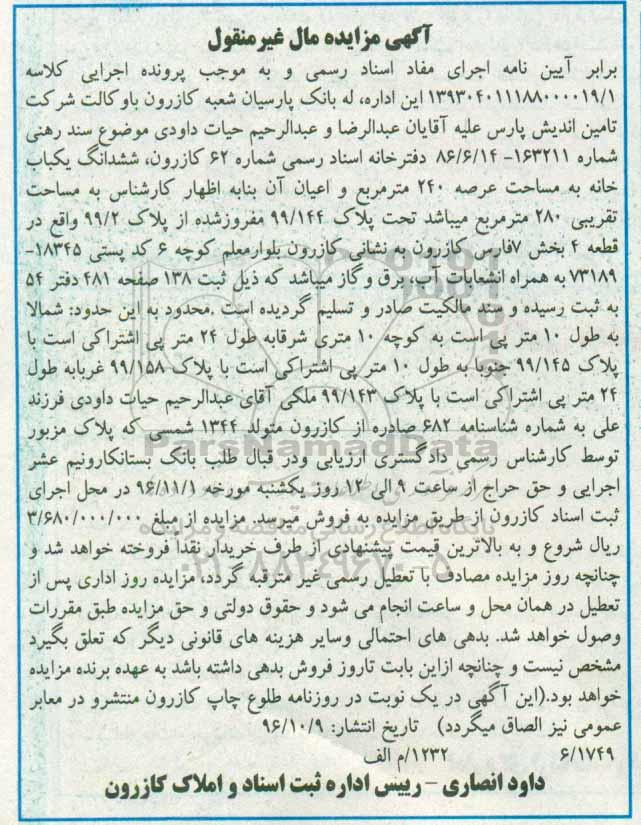 آگهی مزایده مال غیرمنقول
برابر آیین نامه اجرای مفاد اسناد رسمی و به موجب پرونده اجرایی کلاسه
۱۳۹۳۰۴۰۱۱۱۸۸۰۰۰۰۱۹/۱ این اداره، له بانک پارسیان شعبه کازرون باوکالت شرکت
تامین اندیش پارس علیه آقایان عبدالرضا و عبدالرحیم حیات داودی موضوع سند رهنی
شماره ۱۶۳۲۱۱- ۸۶/۶/۱۴ دفترخانه اسناد رسمی شماره ۶۲ کازرون، ششدانگ یکباب
خانه به مساحت عرصه ۲۴۰ مترمربع و اعیان آن بنابه اظهار کارشناس به مساحت
تقریبی ۲۸۰ مترمربع میباشد تحت پلاک ۹۹/۱۴۴ مفروزشده از پلاک ۹۹/۲ واقع در
قطعه ۴ بخش ۷فارس کازرون به نشانی کازرون بلوارمعلم کوچه ۶ کد پستی ۱۸۳۴۵-
۷۳۱۸۹ به همراه انشعابات آب، برق و گاز میباشد که ذیل ثبت ۱۳۸ صفحه ۴۸۱ دفتر ۵۴
به ثبت رسیده و سند مالکیت صادر و تسلیم گردیده است .محدود به این حدود: شمالا
به طول ۱۰ متر پی است به کوچه ۱۰ متری شرقابه طول ۲۴ متر پی اشتراکی است با
پلاک ۹۹/۱۴۵ جنوبا به طول ۱۰ متر پی اشتراکی است با پلاک ۹۹/۱۵۸ غربابه طول
۲۴ متر پی اشتراکی است با پلاک ۹۹/۱۴۳ ملکی آقای عبدالرحیم حیات داودی فرزند
علی به شماره شناسنامه ۶۸۲ صادره از کازرون متولد ۱۳۴۴ شمسی که پلاک مزبور
توسط کارشناس رسمی دادگستری ارزیابی ودر قبال طلب بانک بستانکارونیم عشر
اجرایی و حق حراج از ساعت ۹ الی ۱۲ روز یکشنبه مورخه ۹۶/۱۱/۱ در محل اجرای
ثبت اسناد کازرون از طریق مزایده به فروش میرسد. مزایده از مبلغ ۳/۶۸۰/۰۰۰/۰۰۰
ریال شروع و به بالاترین قیمت پیشنهادی از طرف خریدار نقداً فروخته خواهد شد و
چنانچه روز مزایده مصادف با تعطیل رسمی غیر مترقبه گردد، مزایده روز اداری پس از
تعطیل در همان محل و ساعت انجام می شود و حقوق دولتی و حق مزایده طبق مقررات
وصول خواهد شد. بدهی های احتمالی وسایر هزینه های قانونی دیگر که تعلق بگیرد
مشخص نیست و چنانچه ازاین بابت تاروز فروش بدهی داشته باشد به عهده برنده مزایده
خواهد بود.(این آگهی در یک نوبت در روزنامه طلوع چاپ کازرون منتشرو در معابر
عمومی نیز الصاق میگردد) تاریخ انتشار: ۹۶/۱۰/۹
۶/۱۷۴۹ ۱۲۳۲/م الف
داود انصاری – رییس اداره ثبت اسناد و املاک کازرون
ParsNamadData
۰۲۱-۸۸۳۴۹۶۷۰-۵